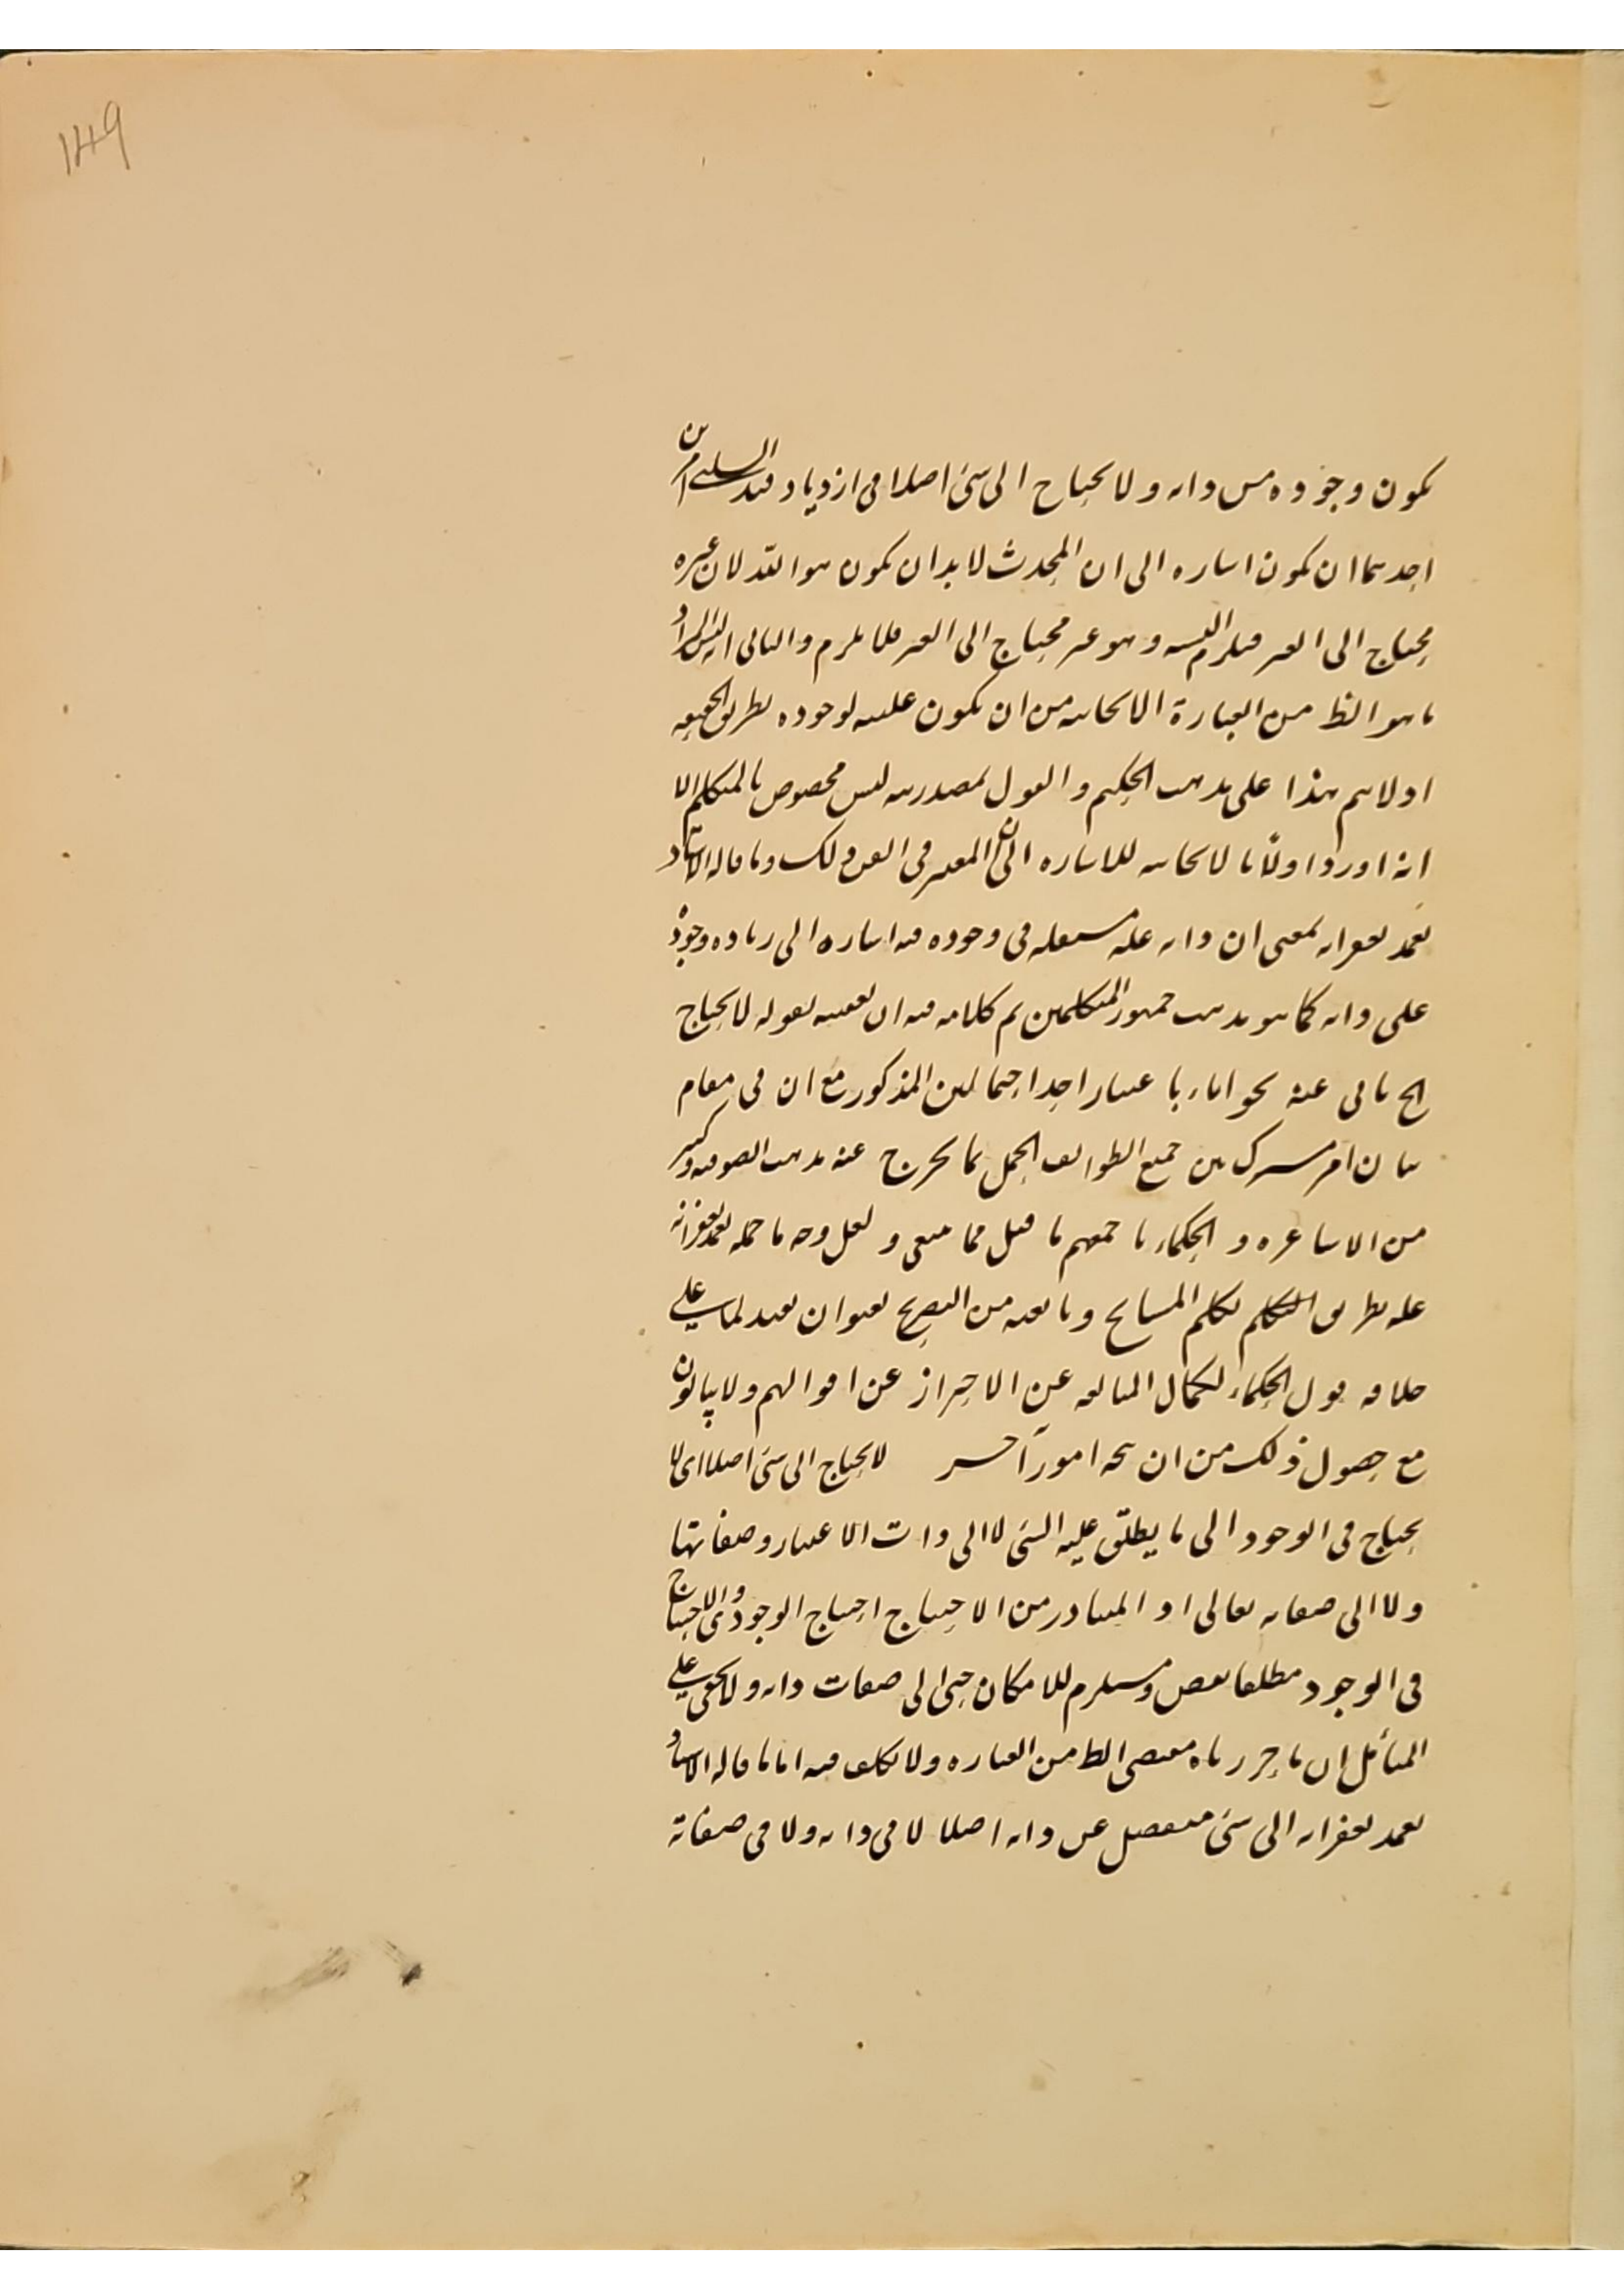 149
يكون وجوده من ذاته ولا يحتاج الى شئ اصلا فى ازدياد قيد السلبى امرين
احدهما ان يكون اشاره الى ان المحدث لا بد ان يكون هو الله لان غيره
محتاج الى الغير فيلزم وهو غير محتاج الى الغير فلا يلزم والثانى انه ليس المراد
ما هو الظ من العبارة الالحاقيه من ان يكون علته لوجوده بطريق الحقيقه
اذ لا يتم هذا على مذهب الحكيم والقول بمصدريته ليس مخصوص بالمتكلم الا
انه اورد اولا ما للاشاره الى ان المعتبر فى ذلك وما قاله الاستاد
تغمد بغفرانه بمعنى ان ذاته علة مستقله فى وجوده فيه اشاره الى زياده وجوده
على ذاته كما هو مذهب جمهور المتكلمين تم كلامه فيه ان تعقيبه بقوله لا يحتاج
الخ يابى عنه نحو اباء باعتبار احد احتمالين المذكور مع ان فى مقام
بيان امر مشترك بين جميع الطوايف الحمل بما يخرج عنه مذهب الصوفيه وكثير
من الاشاعره و الحكماء باجمعهم ما قيل مما ينبغى و لعل وجه ما حمله تغمد بغفرانه
عليه بطريق التكلم تكلم المشايخ وما بعده من التصريح بعنوان
خلافه قول الحكماء لكمال المبالغه عن الاحتراز عن اقوالهم ولا يبالون
مع حصول ذلك من ان امور آخر لا يحتاج الى شئ اصلا اى لا
يحتاج فى الوجود الى ما يطلق عليه الشئ لا الى ذات الاعتبار وصفاتها
ولا الى صفاته تعالى اذ المتبادر من الاحتياج احتياج الوجودى والاحتياج
فى الوجود مطلقا نقص ومستلزم للامكان حتى الى صفات ذاته ولا يخفى على
المتأمل ان ما حررناه مقتضى الظ من العباره ولا تكلف فيه اما ما قاله الاستاد
تغمد بغفرانه الى شئ منفصل عن ذاته اصلا لا فى ذاته ولا فى صفاته